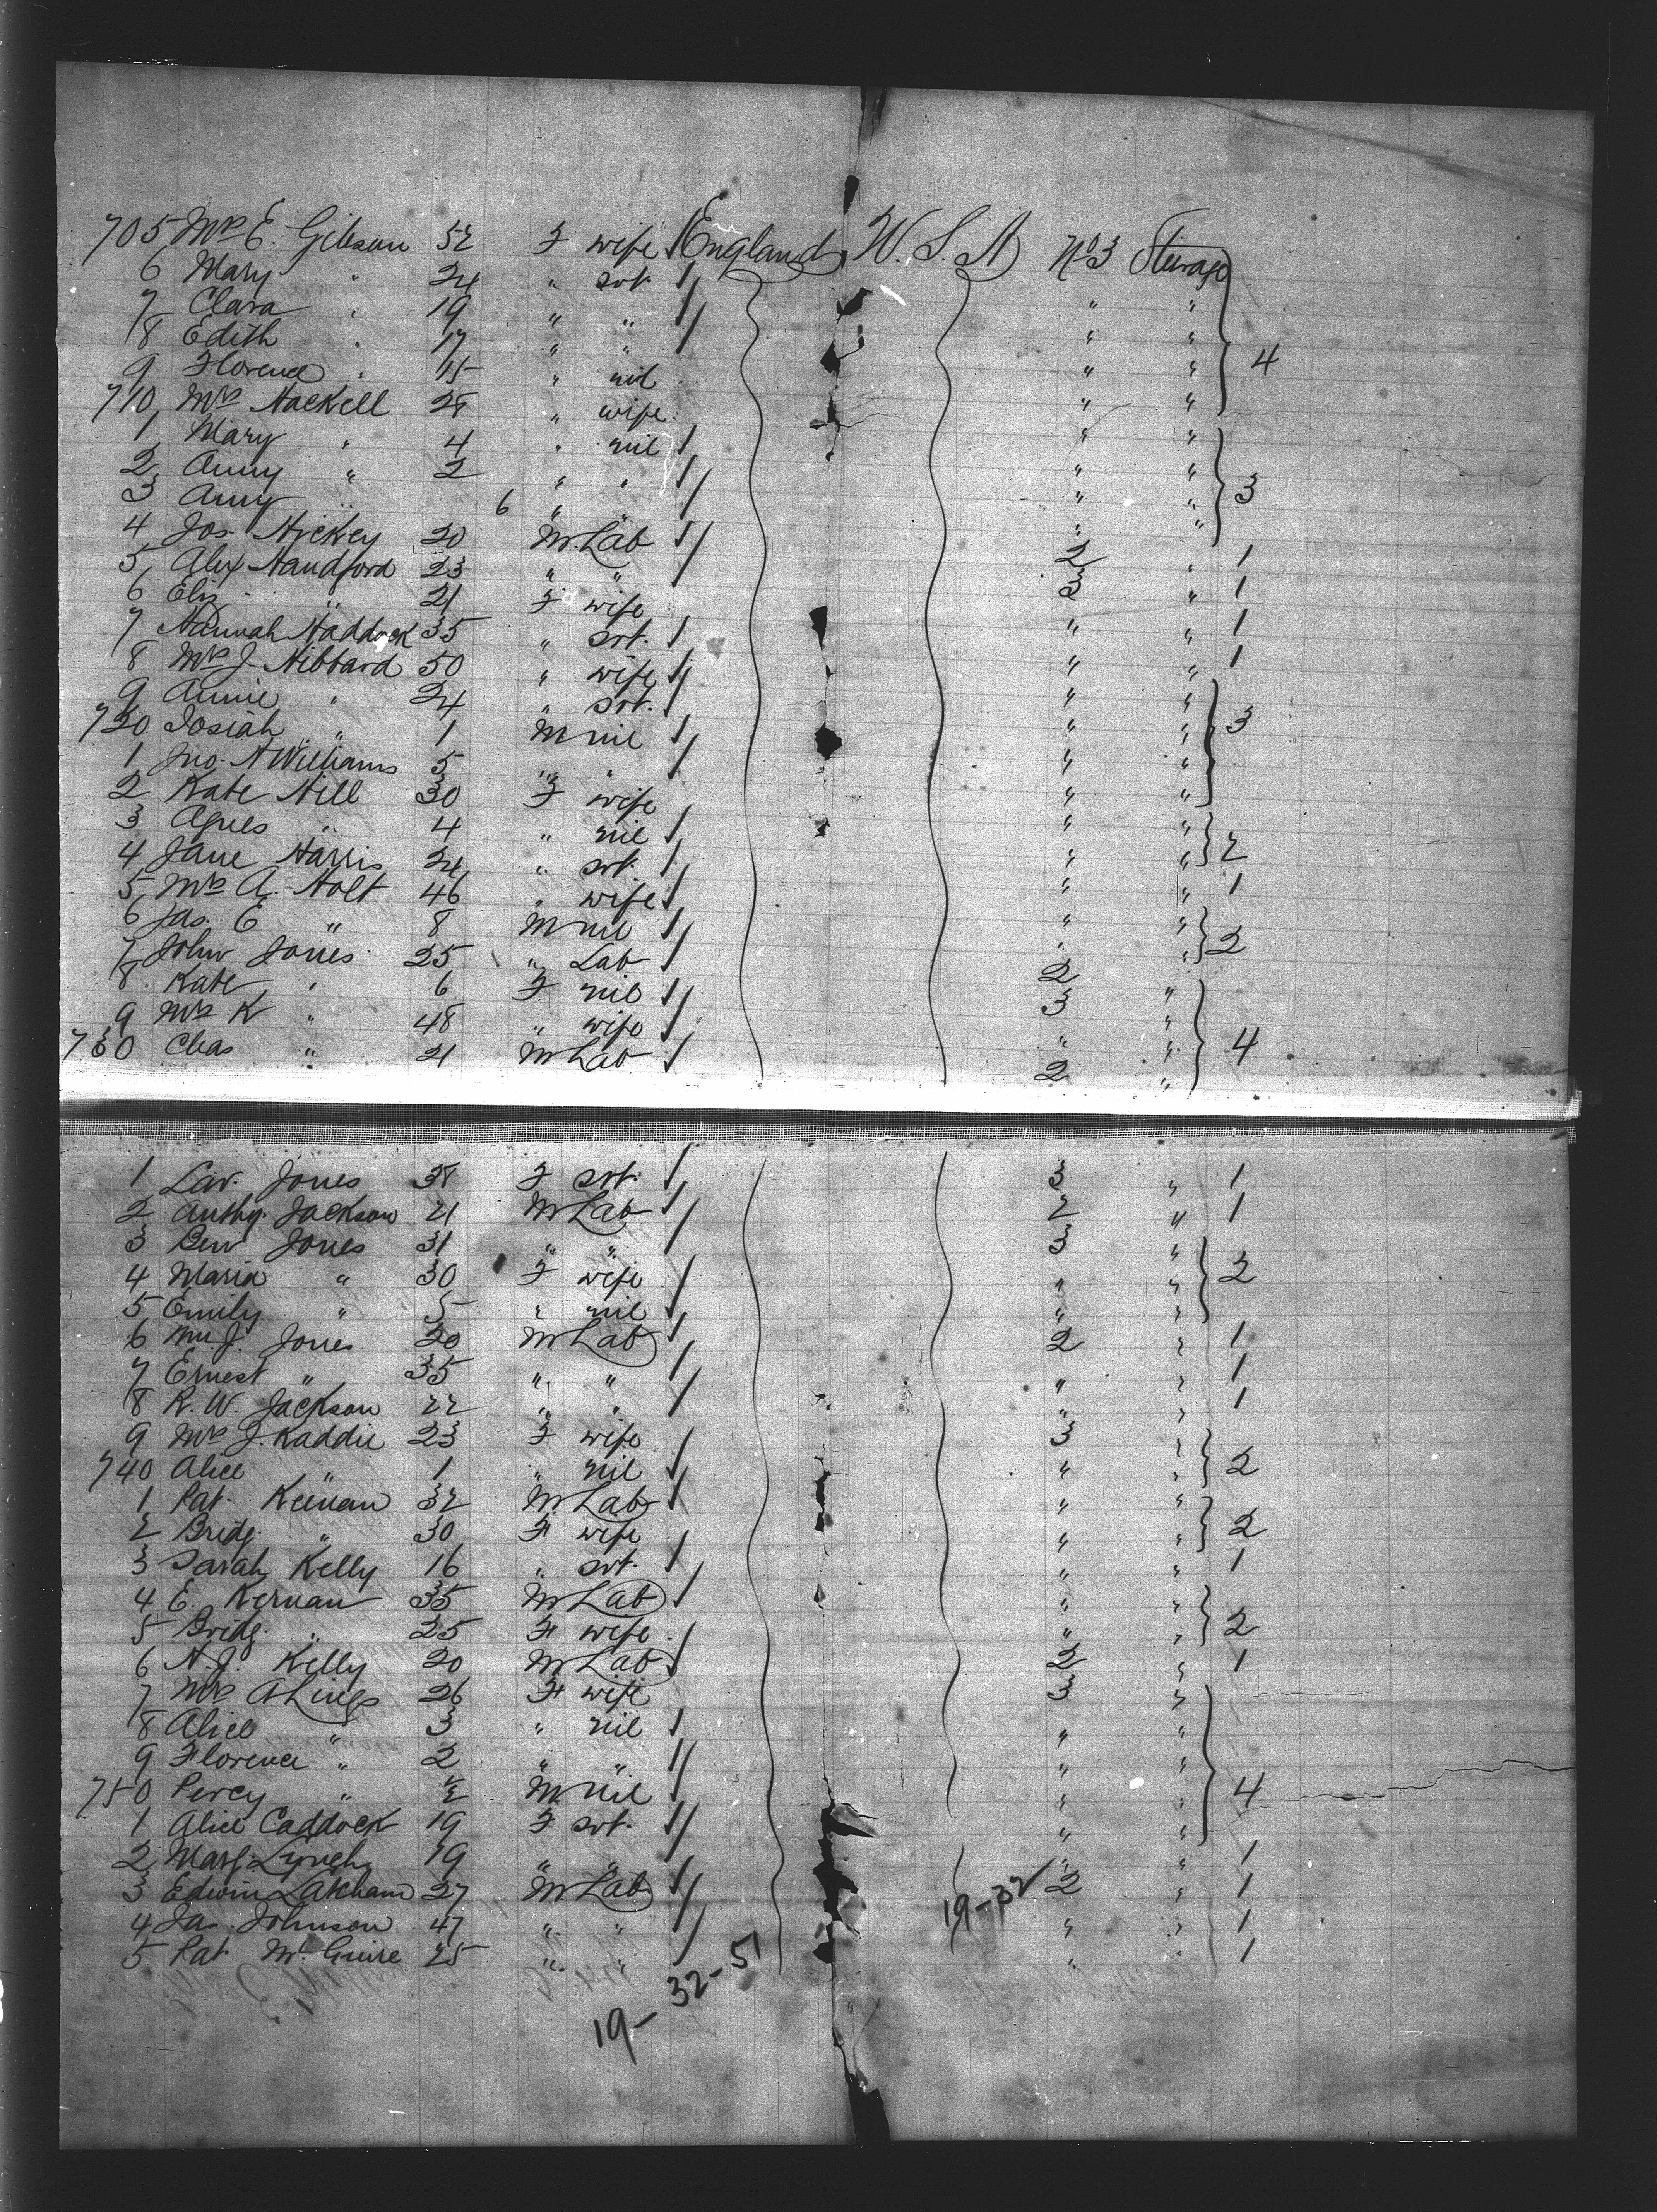 705 Mrs E. Gibson 52 F wife England U.S.A No 3 Steerage
6 Mary " 24 " svt. 
7 Clara " 19 " " " "
8 Edith " 17 " " " "
9 Florence " 15 " nil " " 4
710 Mrs Hackell 28 " wife " "
1 Mary " 4 " nil " "
2 Anny " 2 " " " "
3 Amy " 6 " " " " 3
4 Jos. Hickey 20 M. Lab " "
5 Alex Handford 23 " " 2 " 1
6 Eliz " 21 F wife 3 " 1
7 Hannah Haddock 35 " svt. " " 1
8 Mrs J. Hibbard 50 " wife " " 1
9 Annie " 24 " svt. " "
720 Josiah " 1 M nil " " 3
1 Jno. H Williams 5 " " " "
2 Kate Hill 30 F wife " "
3 Agnes " 4 " nil " "
4 Jane Harris 24 " svt. " " 2
5 Mrs A. Holt 46 " wife " " 1
6 Jas. E " 8 M nil " "
7 John Jones 25 " Lab " " 2
8 Kate " 6 F nil 2 "
9 Mrs K " 48 " wife 3 "
730 Chas " 21 M Lab " " 4
2 "
1 Lav. Jones 38 F svt. 3 " 1
2 Anthy. Jackson 21 M Lab 2 " 1
3 Ben Jones 31 " " 3 "
4 Maria " 30 F wife " " 2
5 Emily " 5 " nil " "
6 Wm. J. Jones 20 M Lab 2 " 1
7 Ernest " 35 " " " " 1
8 R. W. Jackson 22 " " " " 1
9 Mrs J. Kaddie 23 F wife 3 "
740 Alice " 1 " nil " " 2
1 Pat. Keenan 32 M Lab " "
2 Bridg. " 30 F wife " " 2
3 Sarah Kelly 16 " svt. " " 1
4 E. Kernan 35 M Lab " "
5 Bridg. " 25 F wife " " 2
6 H. J. Kelly 20 M Lab 2 " 1
7 Mrs A Lings 26 F wife 3 "
8 Alice " 3 " nil " "
9 Florence " 2 " " " "
750 Percy " M nil " " 4
1 Alice Caddock 19 F svt. " "
2 Marg. Lynch 19 " " " " 1
3 Edwin Lakeham 27 M Lab 2 " 1
4 Ja. Johnson 47 " " 19-32 " " 1
5 Pat McGuire 25 " " " " 1
19-32-51